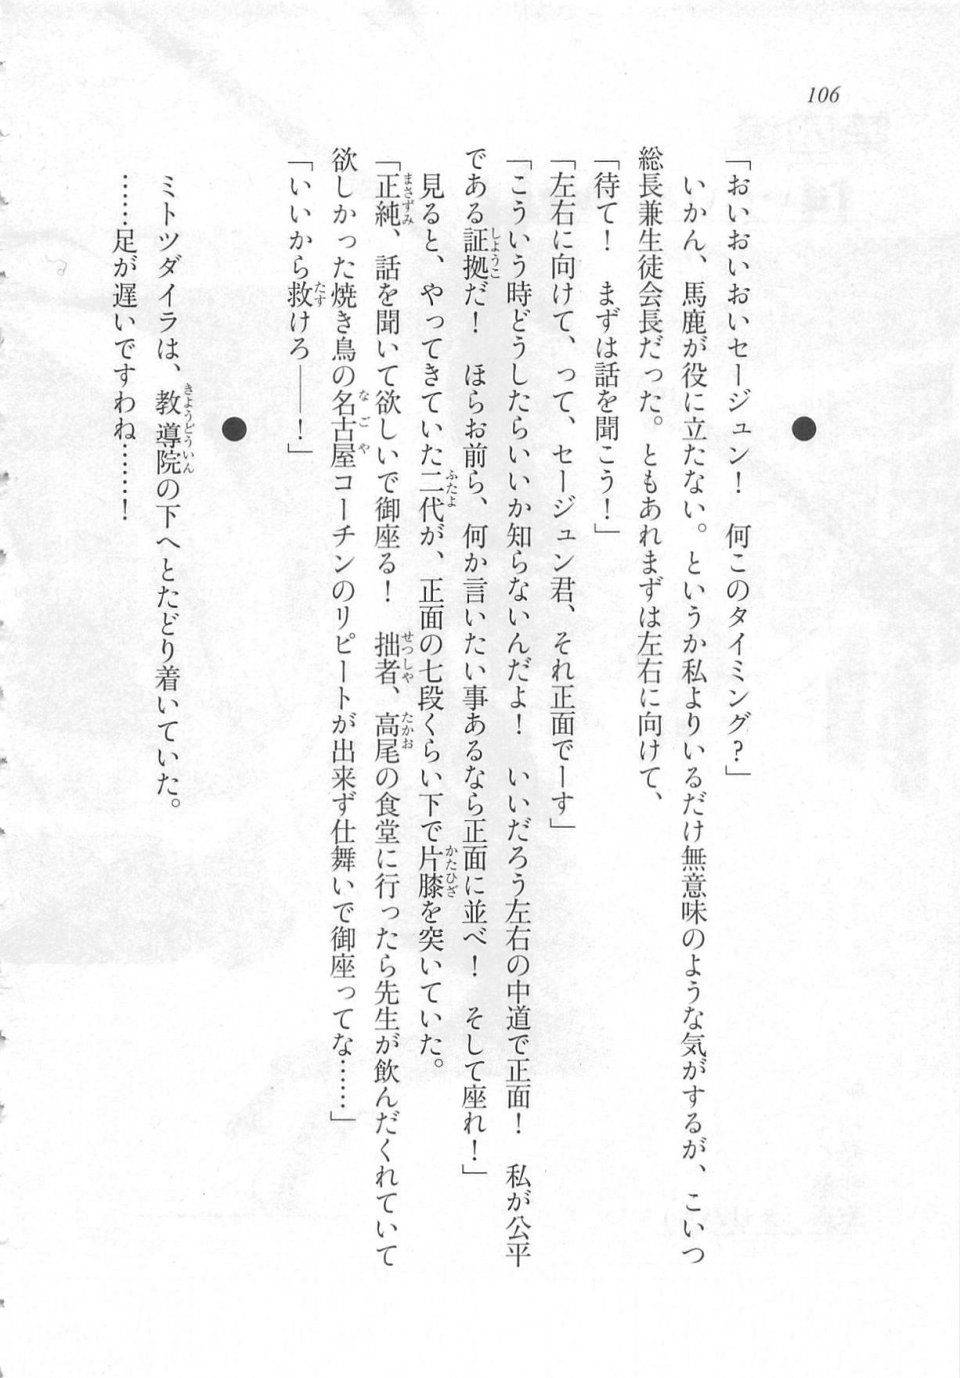 106
●
「おいおいおいセージュン！　何このタイミング？」
　いかん、馬鹿が役に立たない。というか私よりいるだけ無意味のような気がするが、こいつ
総長兼生徒会長だった。ともあれまずは左右に向けて、
「待て！　まずは話を聞こう！」
「左右に向けて、って、セージュン君、それ正面でーす」
「こういう時どうしたらいいか知らないんだよ！　いいだろう左右の中道で正面！　私が公平
である証拠だ！　ほらお前ら、何か言いたい事あるなら正面に並べ！　そして座れ！」
　見ると、やってきていた二代が、正面の七段くらい下で片膝を突いていた。
「正純、話を聞いて欲しいで御座る！　拙者、高尾の食堂に行ったら先生が飲んだくれていて
欲しかった焼き鳥の名古屋コーチンのリピートが出来ず仕舞いで御座ってな……」
「いいから救けろ――！」
●
　ミトツダイラは、教導院の下へとたどり着いていた。
　……足が遅いですわね……！